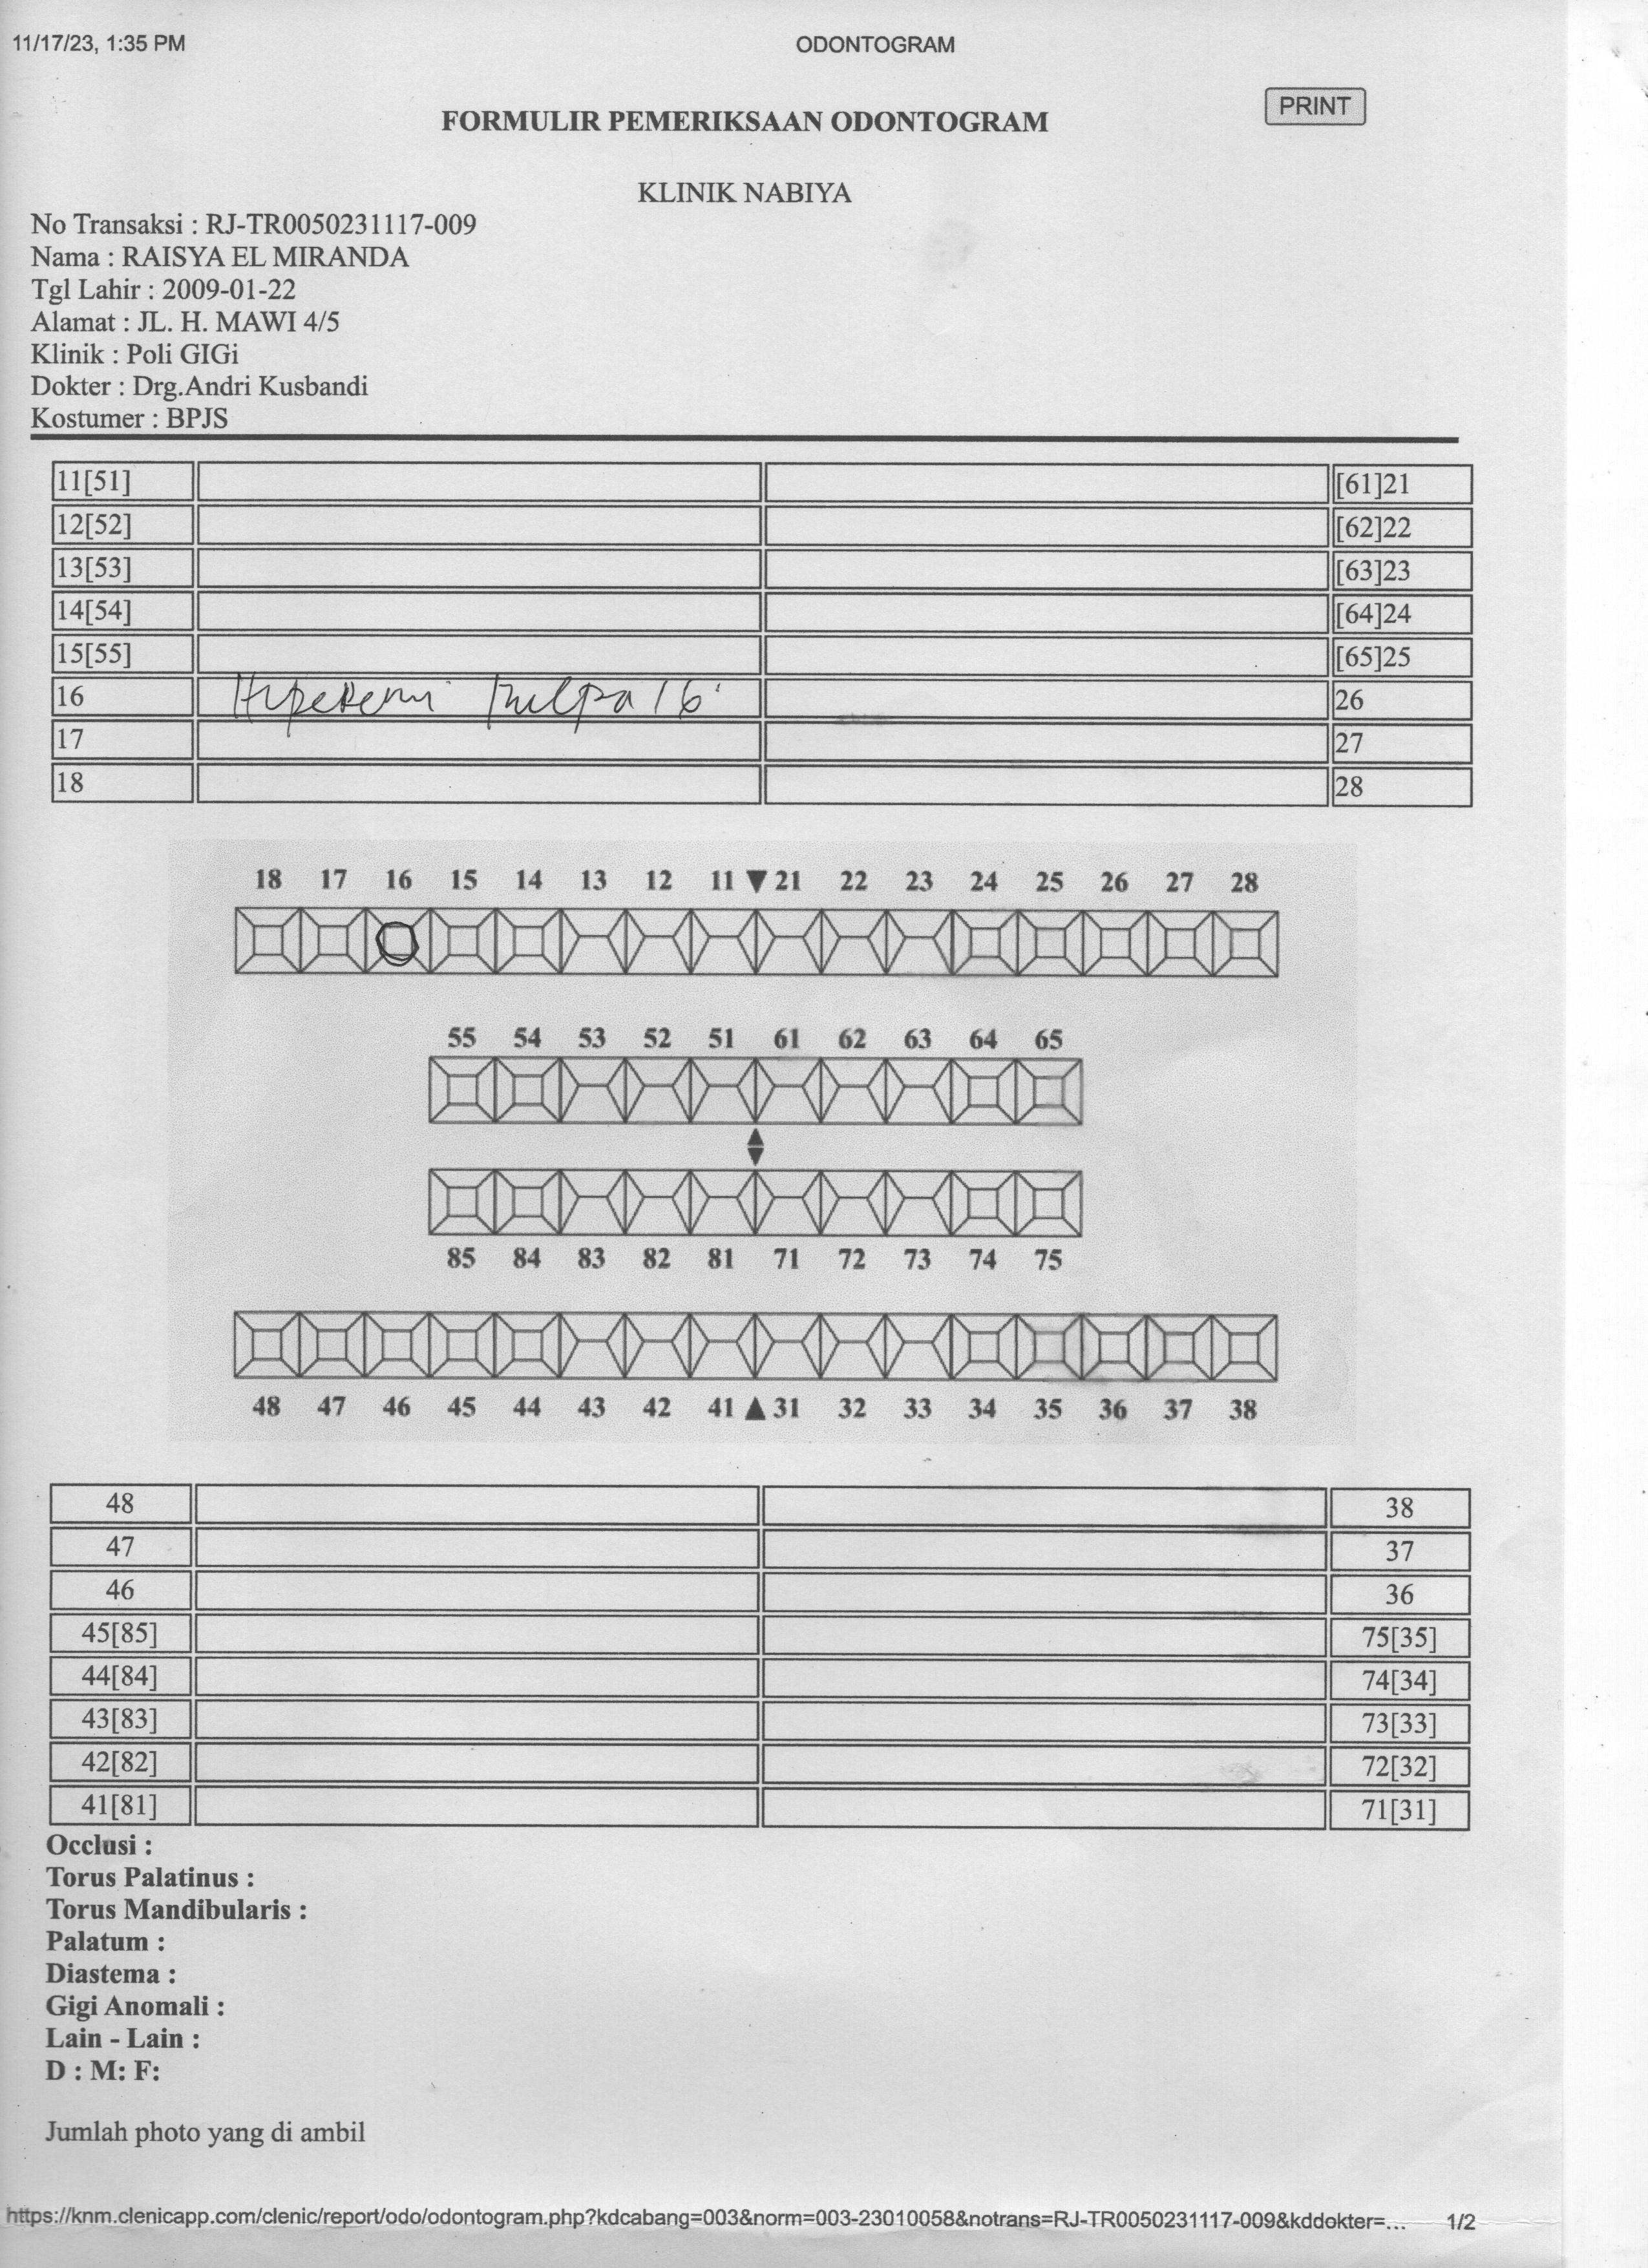 11/17/23, 1:35 PM ODONTOGRAM
PRINT
FORMULIR PEMERIKSAAN ODONTOGRAM
KLINIK NABIYA
No Transaksi : RJ-TR0050231117-009
Nama : RAISYA EL MIRANDA
Tgl Lahir : 2009-01-22
Alamat : JL. H. MAWI 4/5
Klinik : Poli GIGi
Dokter : Drg.Andri Kusbandi
Kostumer : BPJS
11[51] [61]21
12[52] [62]22
13[53] [63]23
14[54] [64]24
15[55] [65]25
16 Hiperemi Pulpa 16 26
17 27
18 28
18 17 16 15 14 13 12 11 21 22 23 24 25 26 27 28
55 54 53 52 51 61 62 63 64 65
85 84 83 82 81 71 72 73 74 75
48 47 46 45 44 43 42 41 31 32 33 34 35 36 37 38
48 38
47 37
46 36
45[85] 75[35]
44[84] 74[34]
43[83] 73[33]
42[82] 72[32]
41[81] 71[31]
Occlusi :
Torus Palatinus :
Torus Mandibularis :
Palatum :
Diastema :
Gigi Anomali :
Lain - Lain :
D : M: F:
Jumlah photo yang di ambil
https://knm.clenicapp.com/clenic/report/odo/odontogram.php?kdcabang=003&norm=003-23010058&notrans=RJ-TR0050231117-009&kddokter=... 1/2